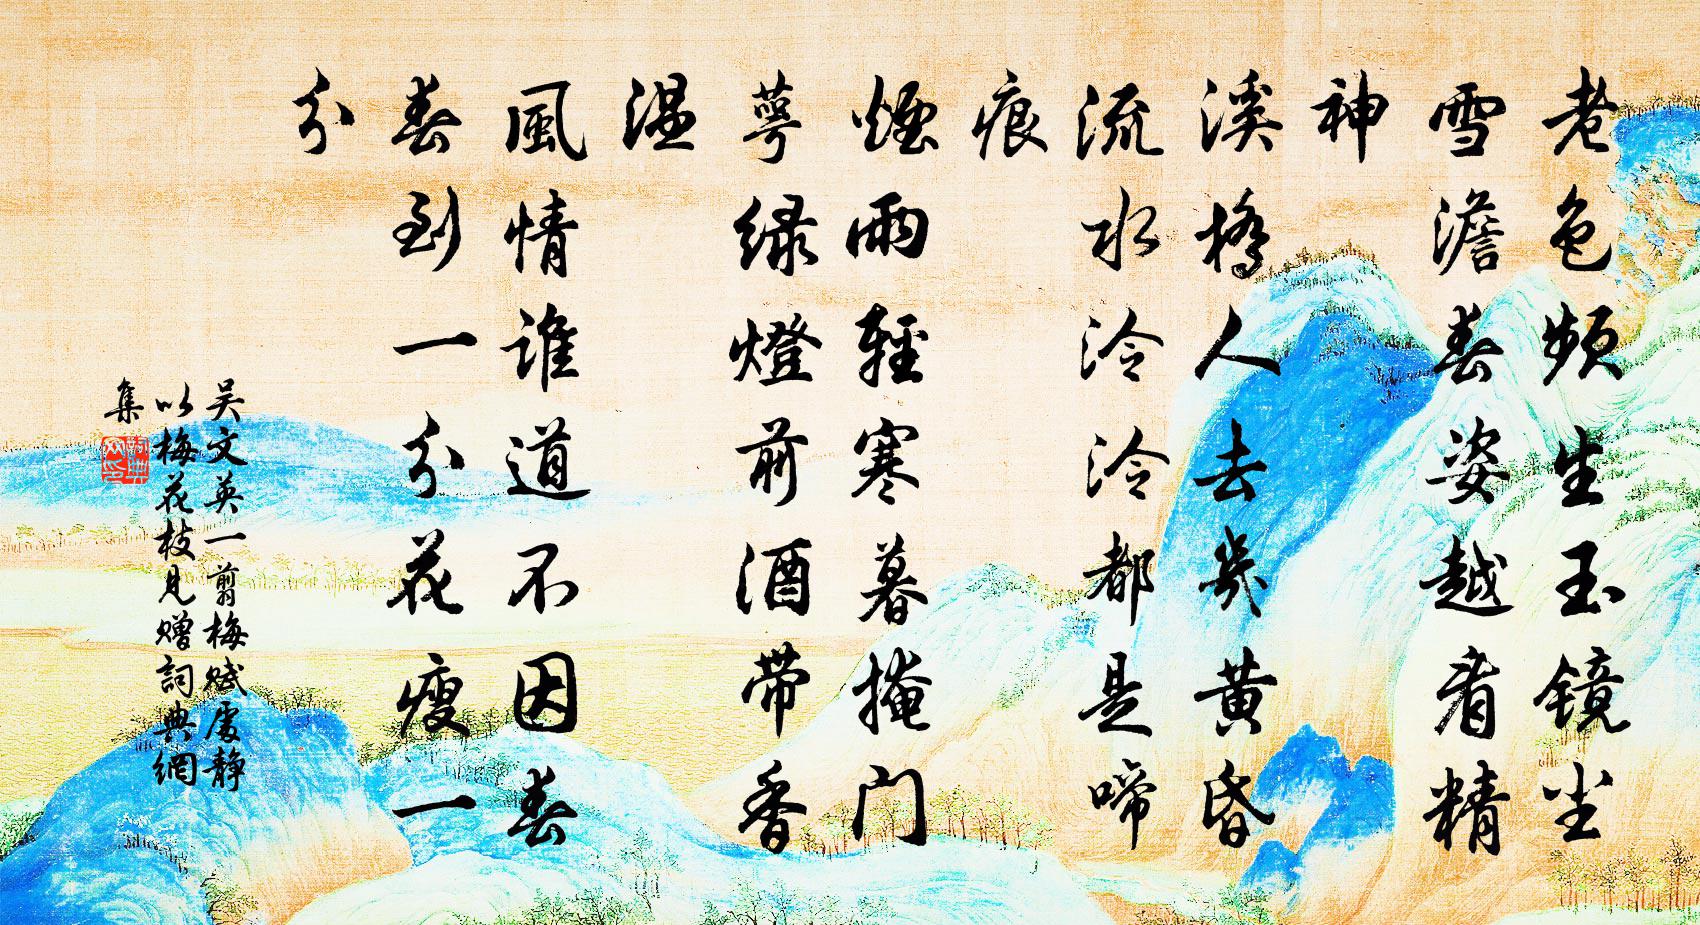 老色频生玉镜尘
雪澹春姿越看精
神
溪橋人去幾黄昏
流水泠泠都是啼
痕
煙雨輕寒暮掩门
萼绿燈前酒带香
温
風情谁道不因春
春到一分花瘦一
分
吴文英一剪梅赋處静
以梅花枝見赠詞典網
集